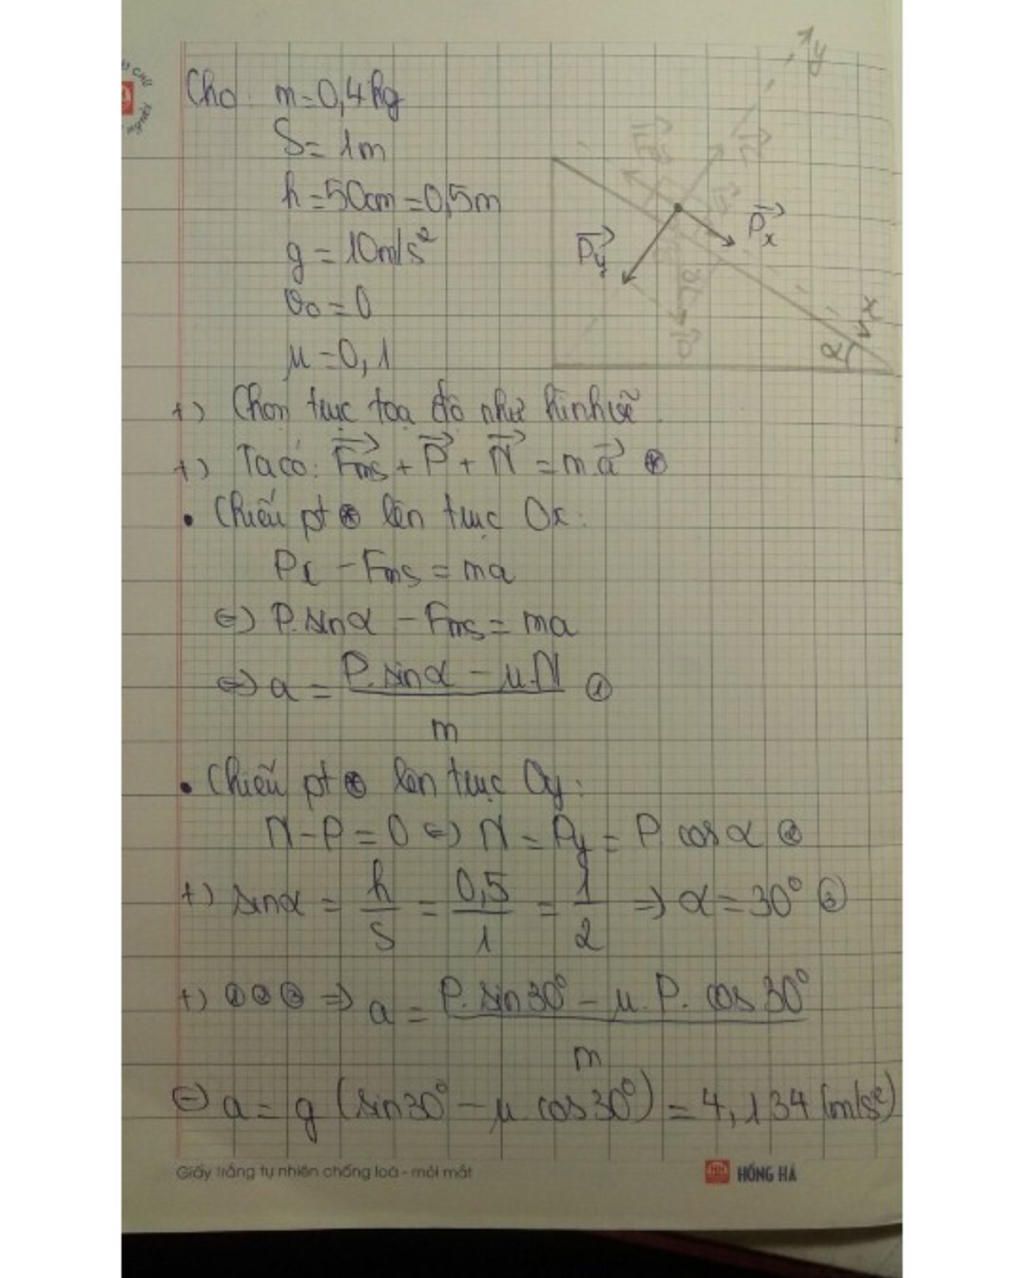 Cho: m=0,4kg
S=1m
h=50cm=0,5m
g=10m/s²
v₀=0
μ=0,1
y
Fms
N
Px
Py
α
P
α
x
+) Chọn trục toạ độ như hình vẽ.
+) Ta có: Fms + P + N = m a ⊛
• Chiếu pt ⊛ lên trục Ox:
Px - Fms = ma
⇔ P.sinα - Fms = ma
⇔ a = P.sinα - μ.N / m ①
• Chiếu pt ⊛ lên trục Oy:
N-P=0 ⇔ N = Py = P cosα ②
+) sinα = h/S = 0,5/1 = 1/2 ⇒ α = 30° ③
+) ①②③ ⇒ a = P.sin30° - μ.P.cos30° / m
⇔ a = g (sin30° - μ cos30°) = 4,134 (m/s²)
Giấy trắng tự nhiên chống loá - mỏi mắt
HỒNG HÀ